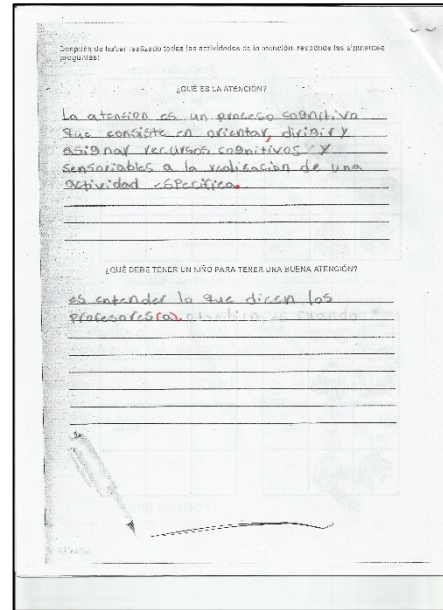 Después de haber realizado todas las actividades de la atención, responde las siguientes
preguntas:
¿QUÉ ES LA ATENCIÓN?
La atension es un proceso cognitivo
que consiste en orientar, dirigir y
asignar recursos cognitivos y
sensoriables a la realización de una
actividad especifica.
¿QUÉ DEBE TENER UN NIÑO PARA TENER UNA BUENA ATENCIÓN?
es entender lo que dicen los
profesores(a).